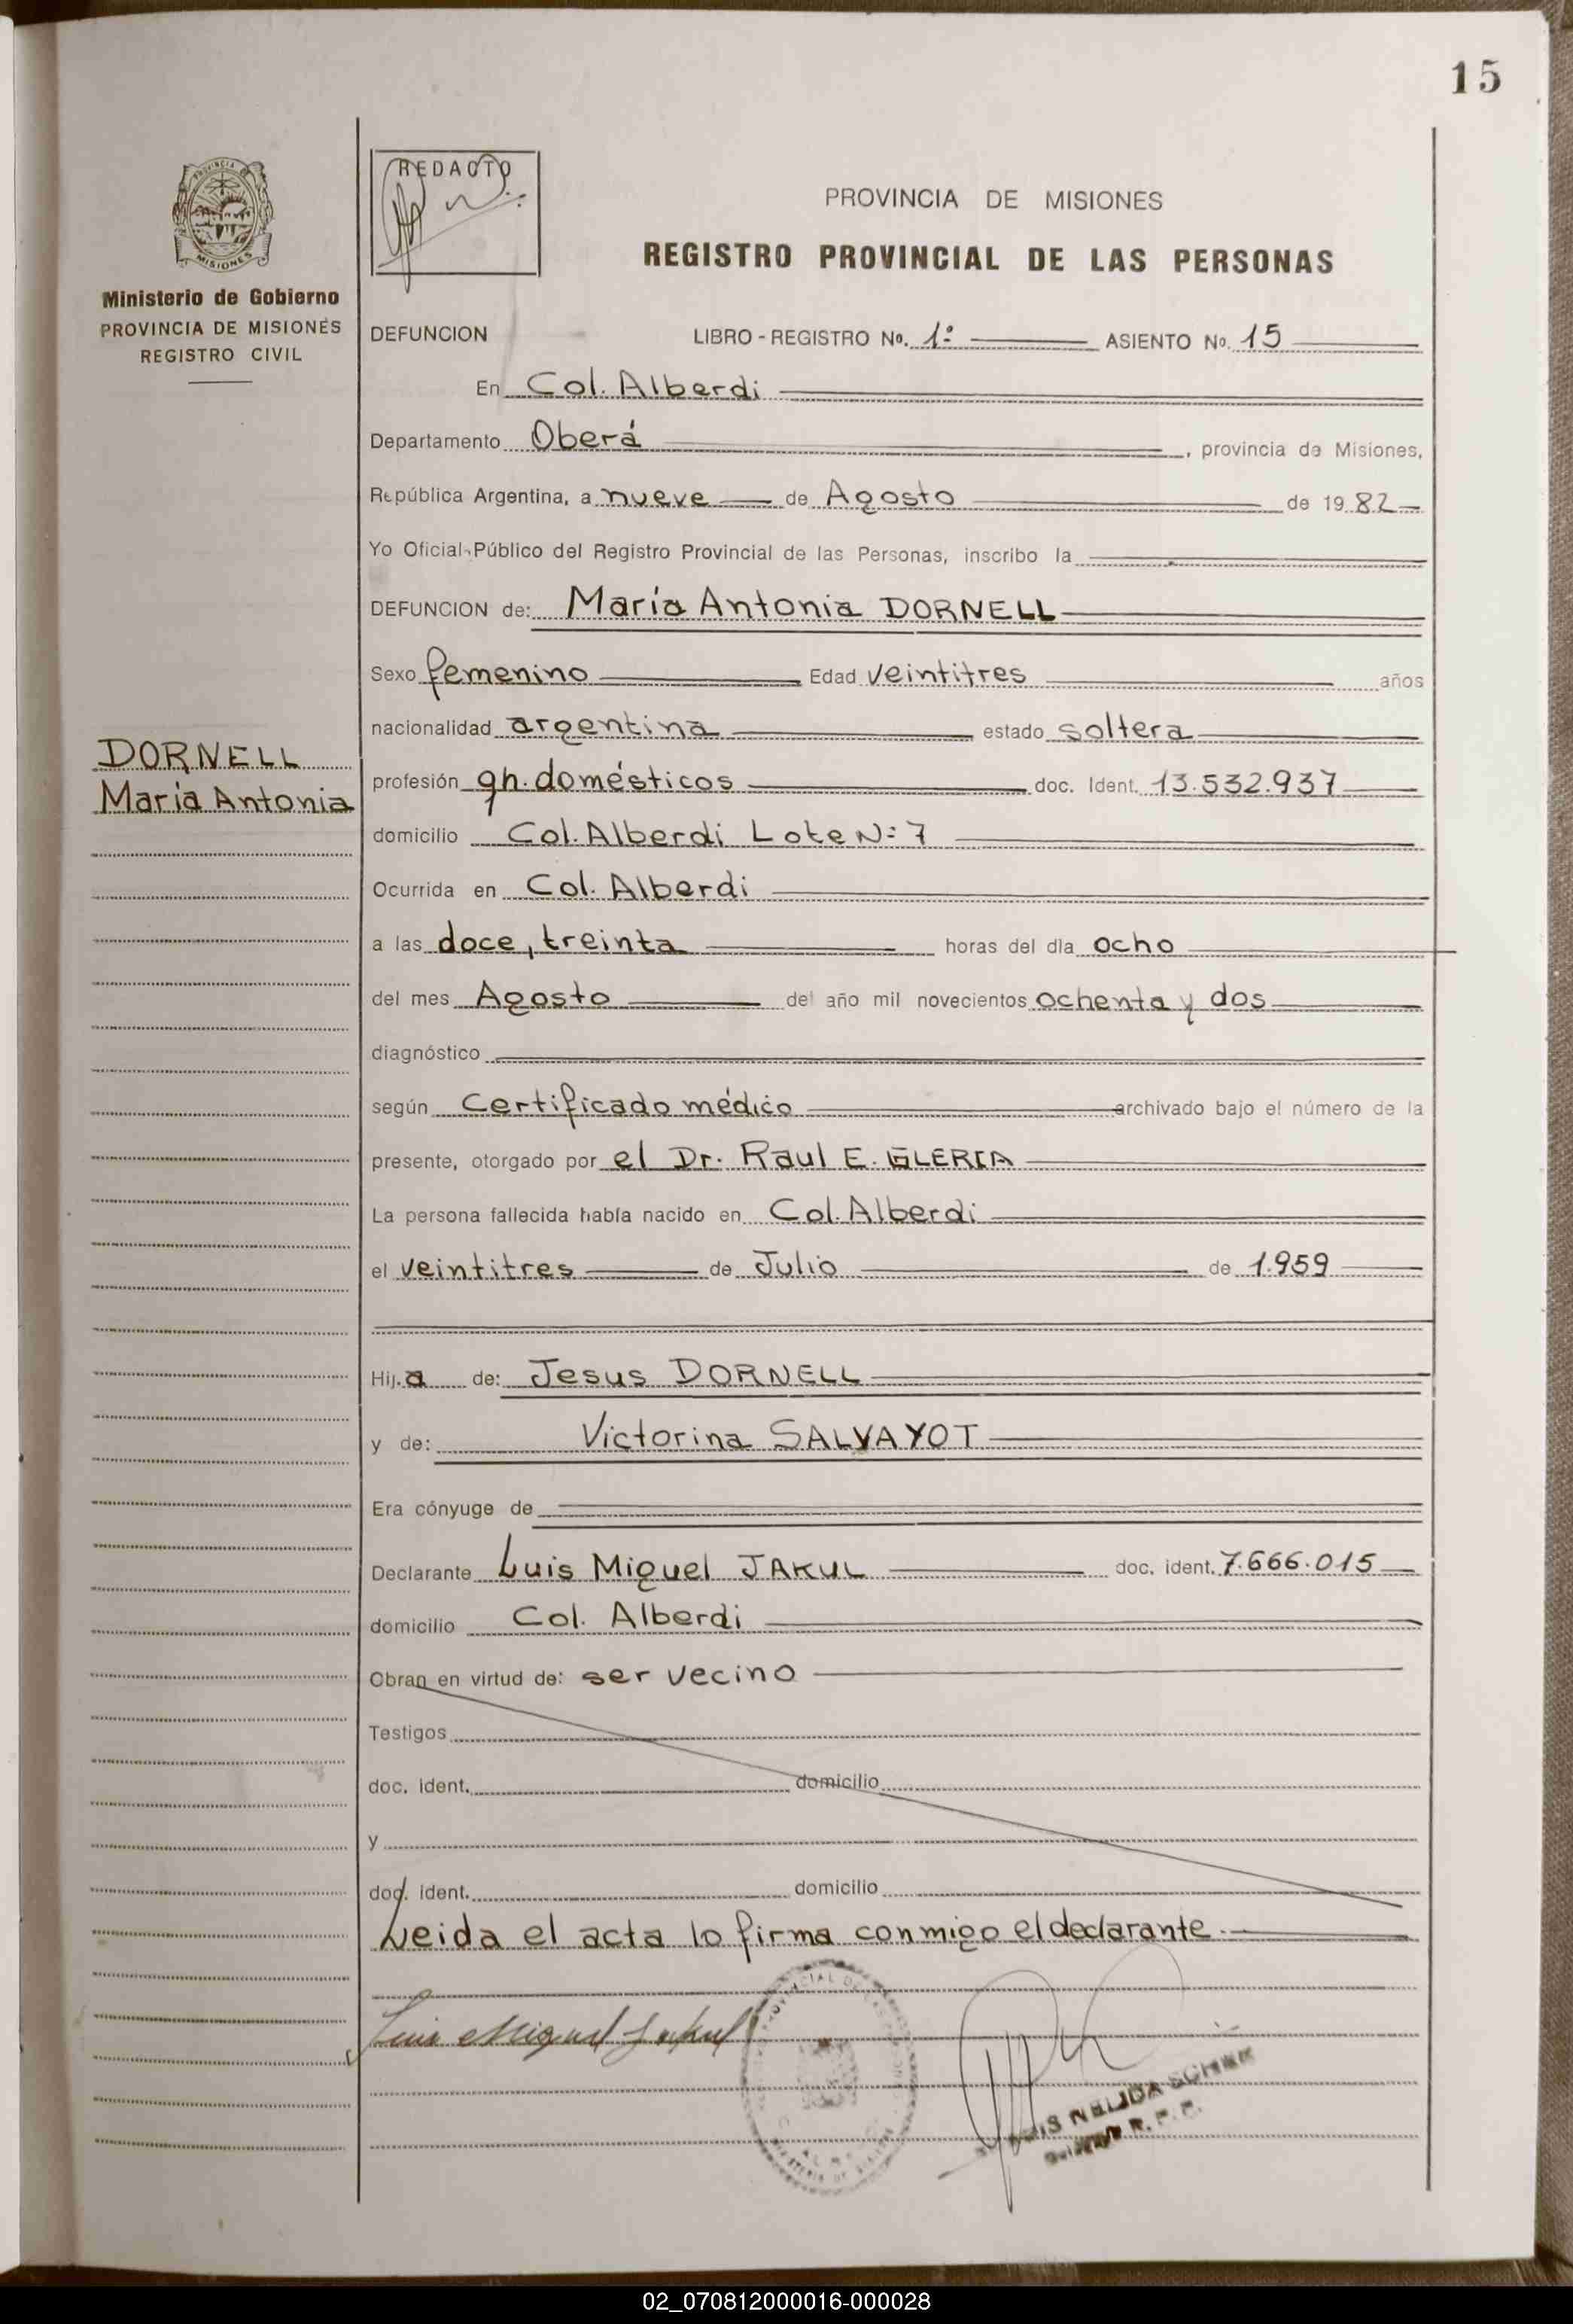 15
REDACTO
PROVINCIA DE MISIONES
REGISTRO PROVINCIAL DE LAS PERSONAS
MISIONES
Ministerio de Gobierno
PROVINCIA DE MISIONES
REGISTRO CIVIL
DEFUNCION LIBRO - REGISTRO No. 1º ASIENTO No. 15
En Col. Alberdi
Departamento Oberá, provincia de Misiones,
República Argentina, a nueve de Agosto de 1982
Yo Oficial Público del Registro Provincial de las Personas, inscribo la
DEFUNCION de: María Antonia DORNELL
Sexo femenino Edad veintitres años
nacionalidad argentina estado soltera
DORNELL
María Antonia
profesión qh. domésticos doc. Ident. 13.532.937
domicilio Col. Alberdi Lote Nº 7
Ocurrida en Col. Alberdi
a las doce, treinta horas del día ocho
del mes Agosto del año mil novecientos ochenta y dos
diagnóstico
según certificado médico archivado bajo el número de la
presente, otorgado por el Dr. Raul E. GLERIA
La persona fallecida había nacido en Col. Alberdi
el veintitres de Julio de 1.959
Hij.a de: Jesus DORNELL
y de: Victorina SALVAYOT
Era cónyuge de
Declarante Luis Miguel JAKUL doc. ident. 7.666.015
domicilio Col. Alberdi
Obran en virtud de: ser vecino
Testigos
doc. ident. domicilio
y
doc. ident. domicilio
Leida el acta lo firma conmigo el declarante
Luis Miguel Jakul
NELIDA
02_070812000016-000028